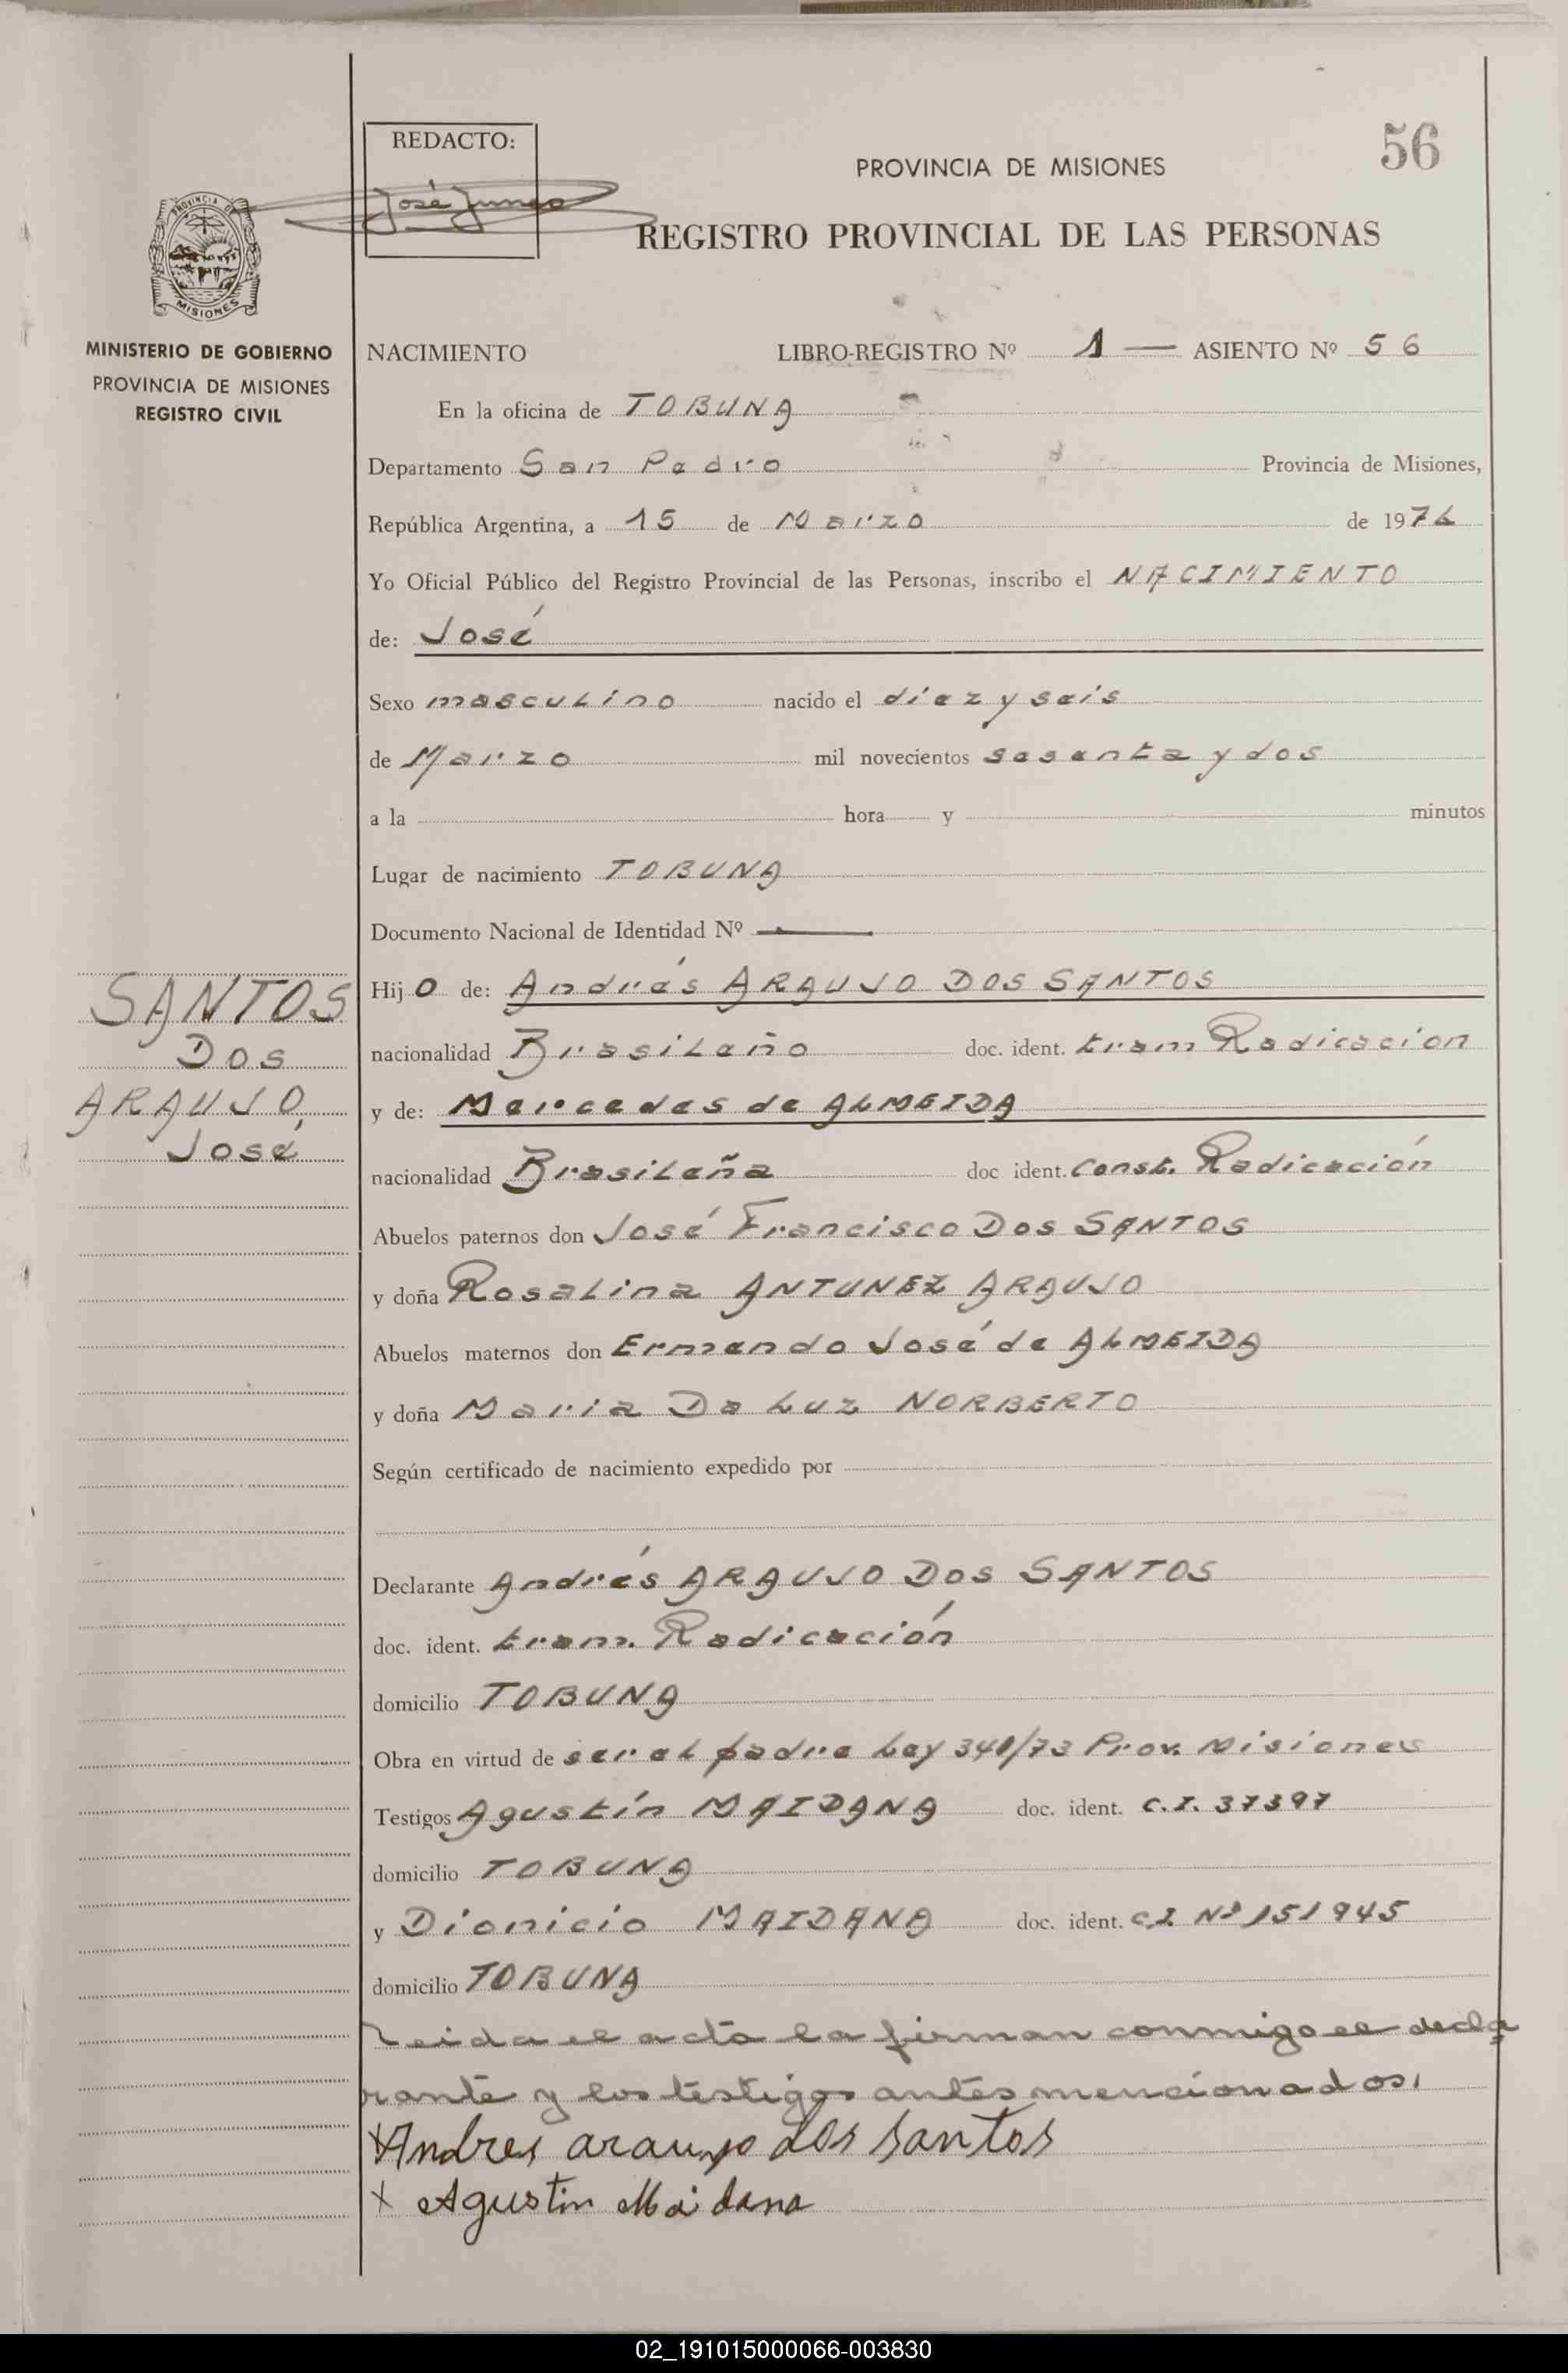 REDACTO:
56
PROVINCIA DE MISIONES
REGISTRO PROVINCIAL DE LAS PERSONAS
PROVINCIA DE
MISIONES
MINISTERIO DE GOBIERNO
PROVINCIA DE MISIONES
REGISTRO CIVIL
NACIMIENTO LIBRO-REGISTRO Nº 1 — ASIENTO Nº 56
En la oficina de TOBUNA
Departamento San Pedro Provincia de Misiones,
República Argentina, a 15 de Marzo de 197
Yo Oficial Público del Registro Provincial de las Personas, inscribo el NACIMIENTO
de: José
Sexo masculino nacido el diez y seis
de Marzo mil novecientos sesenta y dos
a la hora y minutos
Lugar de nacimiento TOBUNA
Documento Nacional de Identidad Nº —
Hijo de: Andrés ARAUJO DOS SANTOS
nacionalidad Brasileño doc. ident. tram Radicacion
y de: Mercedes de ALMEIDA
nacionalidad Brasileña doc ident. Const. Radicación
Abuelos paternos don José Francisco Dos SANTOS
y doña Rosalina ANTUNEZ ARAUJO
Abuelos maternos don Ermando José de ALMEIDA
y doña Maria Da Luz NORBERTO
Según certificado de nacimiento expedido por
Declarante Andrés ARAUJO DOS SANTOS
doc. ident. tram. Radicación
domicilio TOBUNA
Obra en virtud de ser el padre Ley 340/73 Prov. Misiones
Testigos Agustín MAIDANA doc. ident. C.I. 37397
domicilio TOBUNA
y Dionicio MAIDANA doc. ident. C.I Nº 151945
domicilio TOBUNA
Leida el acta la firman conmigo el decla
rante y los testigos antes mencionados.
x Andres araujo dos santos
x Agustin Maidana
SANTOS
DOS
ARAUJO,
José
02_191015000066-003830